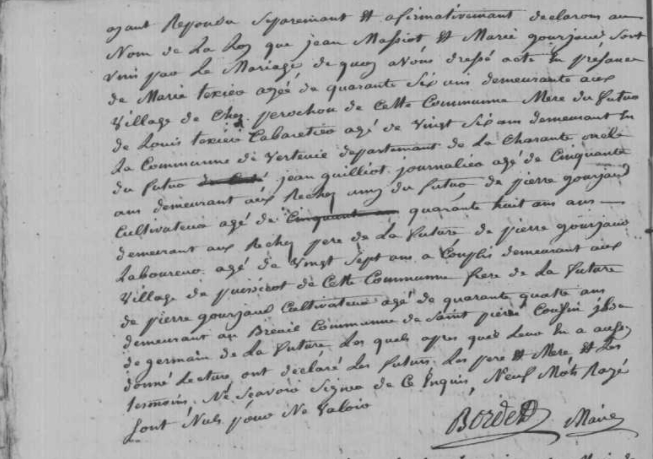 ayant Repondu separemant & afirmativemant declarons au
Nom de La Loy que jean Massiot & Marie gourjaud sont
unis par Le Mariage de quoy avons dressé acte en présance
de Marie texier agée de quarante six ans demeurante aux
Village de Chez perochon de Cette Communne Mere du futur
de Louis texier Cabaretier agé de Vingt six ans demeurant
La Communne de Verteuil departemant de La Charante oncle
du futur jean guilliot journalier agé de Cinquante
ans demeurant aux Rechez du futur de pierre gourjaud
Cultivateur agé de Cinquante quarante huit ans ans
demeurant aux Rechez pere de La future de pierre gourjaud
Laboureur agé de Vingt sept ans a Complis demeurant aux
Village de de Cette Communne frere de La future
de pierre gourjaud Cultivateur agé de quarante quatre ans
demeurant au Breuil Communne de Saint pierre Cousin
de germain de La future Les quels apres que Leur en a
donné Lecture ont declaré Les futurs Les pere & Mere & Les
tesmoins Ne Scavoir Signer de Ce Enquis, Neuf Mots Rayé
Sont Nuls pour Ne Valoir
Borde Maire